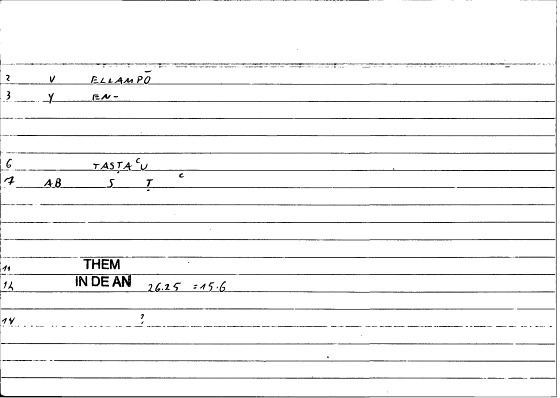 2 V ELLAMPŌ
3 Y EN-
6 TASṬACU
7 AB S Ṭ C
11 THEM
12 IN DE AN 26.25 =15.6
14 ?